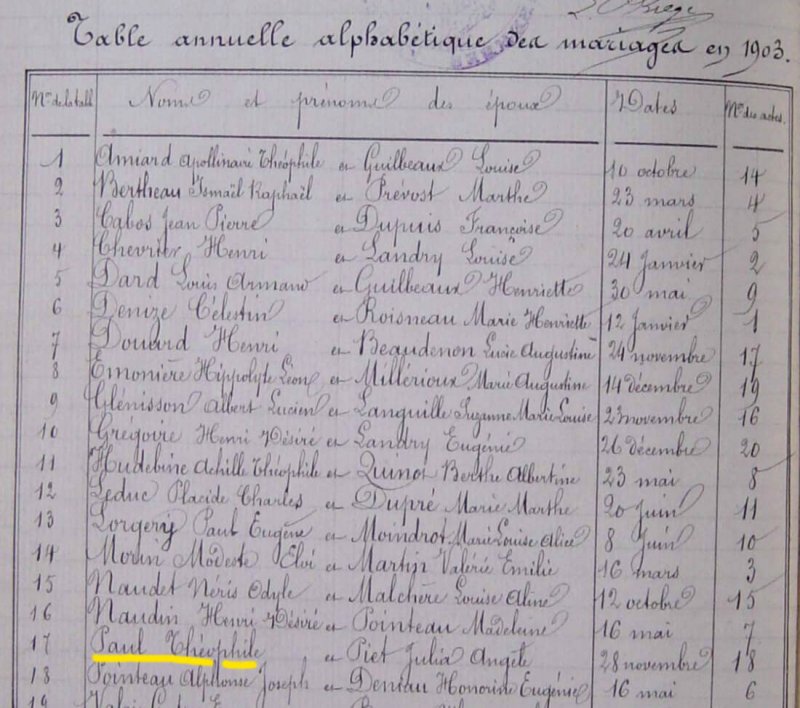 Table annuelle alphabétique des mariages en 1903.
Nos de la tall Noms et prénoms des époux Dates Nos des actes
1 Amiard Apollinaire Théophile et Guilbeaux Louise 10 octobre 14
2 Bertheau Ismaël Raphaël et Prévost Marthe 23 mars 4
3 Cabos Jean Pierre et Dupuis Françoise 20 avril 5
4 Chevrier Henri et Landry Louise 24 Janvier 2
5 Dard Louis Armand et Guilbeaux Henriette 30 mai 9
6 Denize Célestin et Roisneau Marie Henriette 12 Janvier 1
7 Douard Henri et Beaudenon Lucie Augustine 24 novembre 17
8 Emonière Hippolyte Léon et Millérioux Marie Augustine 14 décembre 19
9 Glénisson Albert Lucien et Languille Suzanne Marie Louise 23 novembre 16
10 Grégoire Henri Désiré et Landry Eugénie 26 décembre 20
11 Hudebine Achille Théophile et Quinot Berthe Albertine 23 mai 8
12 Leduc Placide Charles et Dupré Marie Marthe 20 Juin 11
13 Lorgery Paul Eugène et Moindrot Marie Louise Alice 8 Juin 10
14 Morin Modeste Eloi et Martin Valérie Emilie 16 mars 3
15 Naudet Néris Odyle et Malchère Louise Aline 12 octobre 15
16 Naudin Henri Désiré et Pointeau Madeleine 16 mai 7
17 Paul Théophile et Piet Julia Angèle 28 novembre 18
18 Pointeau Alphonse Joseph et Deniau Honorine Eugénie 16 mai 6
19